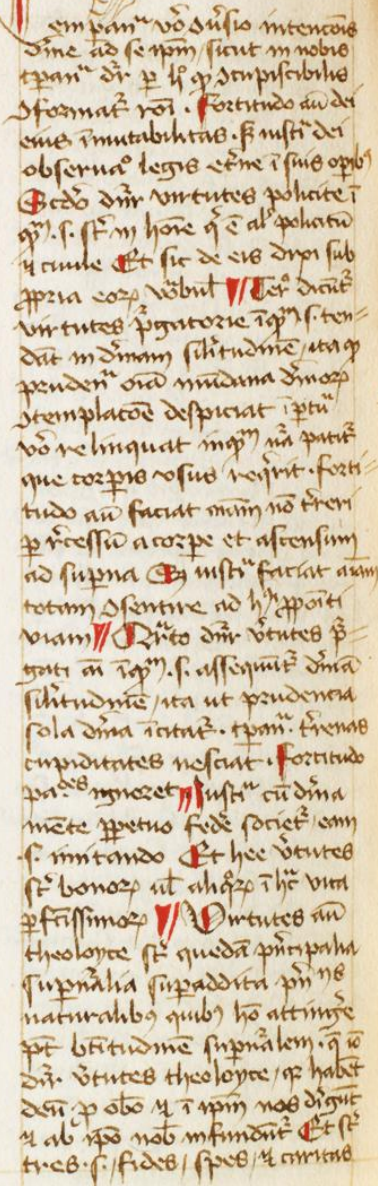 Tempan͞a v͞o 9ūsio intencōis
dīne ad se ip̄m, sicut in nobis
tp̄an͞a d͞r p̱ h̄ ꝙ 9cupiscibilis
9format͛ rōi . Fortitudo aū dei
eius īmutabilitas . s͛ iusti͞a dei
obserua͞o legis et͛ne ī suis opib᷒
Scd̄o dn͞r virtutes politice ī
qᷓ . s . st͛ in hoīe q͛ ē aīal politicū
⁊ ciuile Et sic de eis dixi sub
ꝓpria eoꝝ vo͛bul
¶ Tercᵒ dicūt͛
virtutes p͛gatorie īqᷓ . s . ten-
dāt in dīnam sil͛tudinē, ita ꝙ
prudenᷓ oīa mūdana dīnoꝝ
9templacōe despiciat tp̄a͞a
v͞o relinquat inqᷓ nᷓa patit͛
que corp̱is vsus req͛rit . forti-
tudo aū faciat aīam nō t͛reri
p̱ r͛cessū a corpe et ascensum
ad sup̱na Sꝫ iustiᷓ faciat aīam
totam 9sentire ad h̄ ꝓpoīti
viam ¶ Qͣrto dn͞r v͛tutes p͛-
gati aī īqᷓ . s . assequūt͛ dīnā
sil͛tudinē, ita ut prudencia
sola dīna īcitat͛ . tp̄anᷓ . t͛renas
cupiditates nesciat . Fortitudo
pa͞des ignoret ¶ Iustiᷓ cū dīna
mēte ꝑpetuo fede͛ societ͛, eam
. s . imitando Et hee v͛tutes
st͛ bonoꝝ ul̄ aliq͛oꝝ ī hͣc vita
ꝑfc̄issimoꝝ ¶ Virtutes aū
theoloyce st͛ quedā pn͛cipalia
sup̱nͣlia sup̱addita pn͛ ijs
naturalib᷒ quib᷒ hō attinge͛
pt̄ bt̄itudinē sup̱nͣlem . q͛ iō
dn͞r . v͛tutes theoloyce, qꝛ habēt
deū . p̱ obō ⁊ ī ip̄m nos di͛gūt
⁊ ab ip̄o nob̄ infundūt͛ Et st͛
tres . s . fides, spes, ⁊ caritas